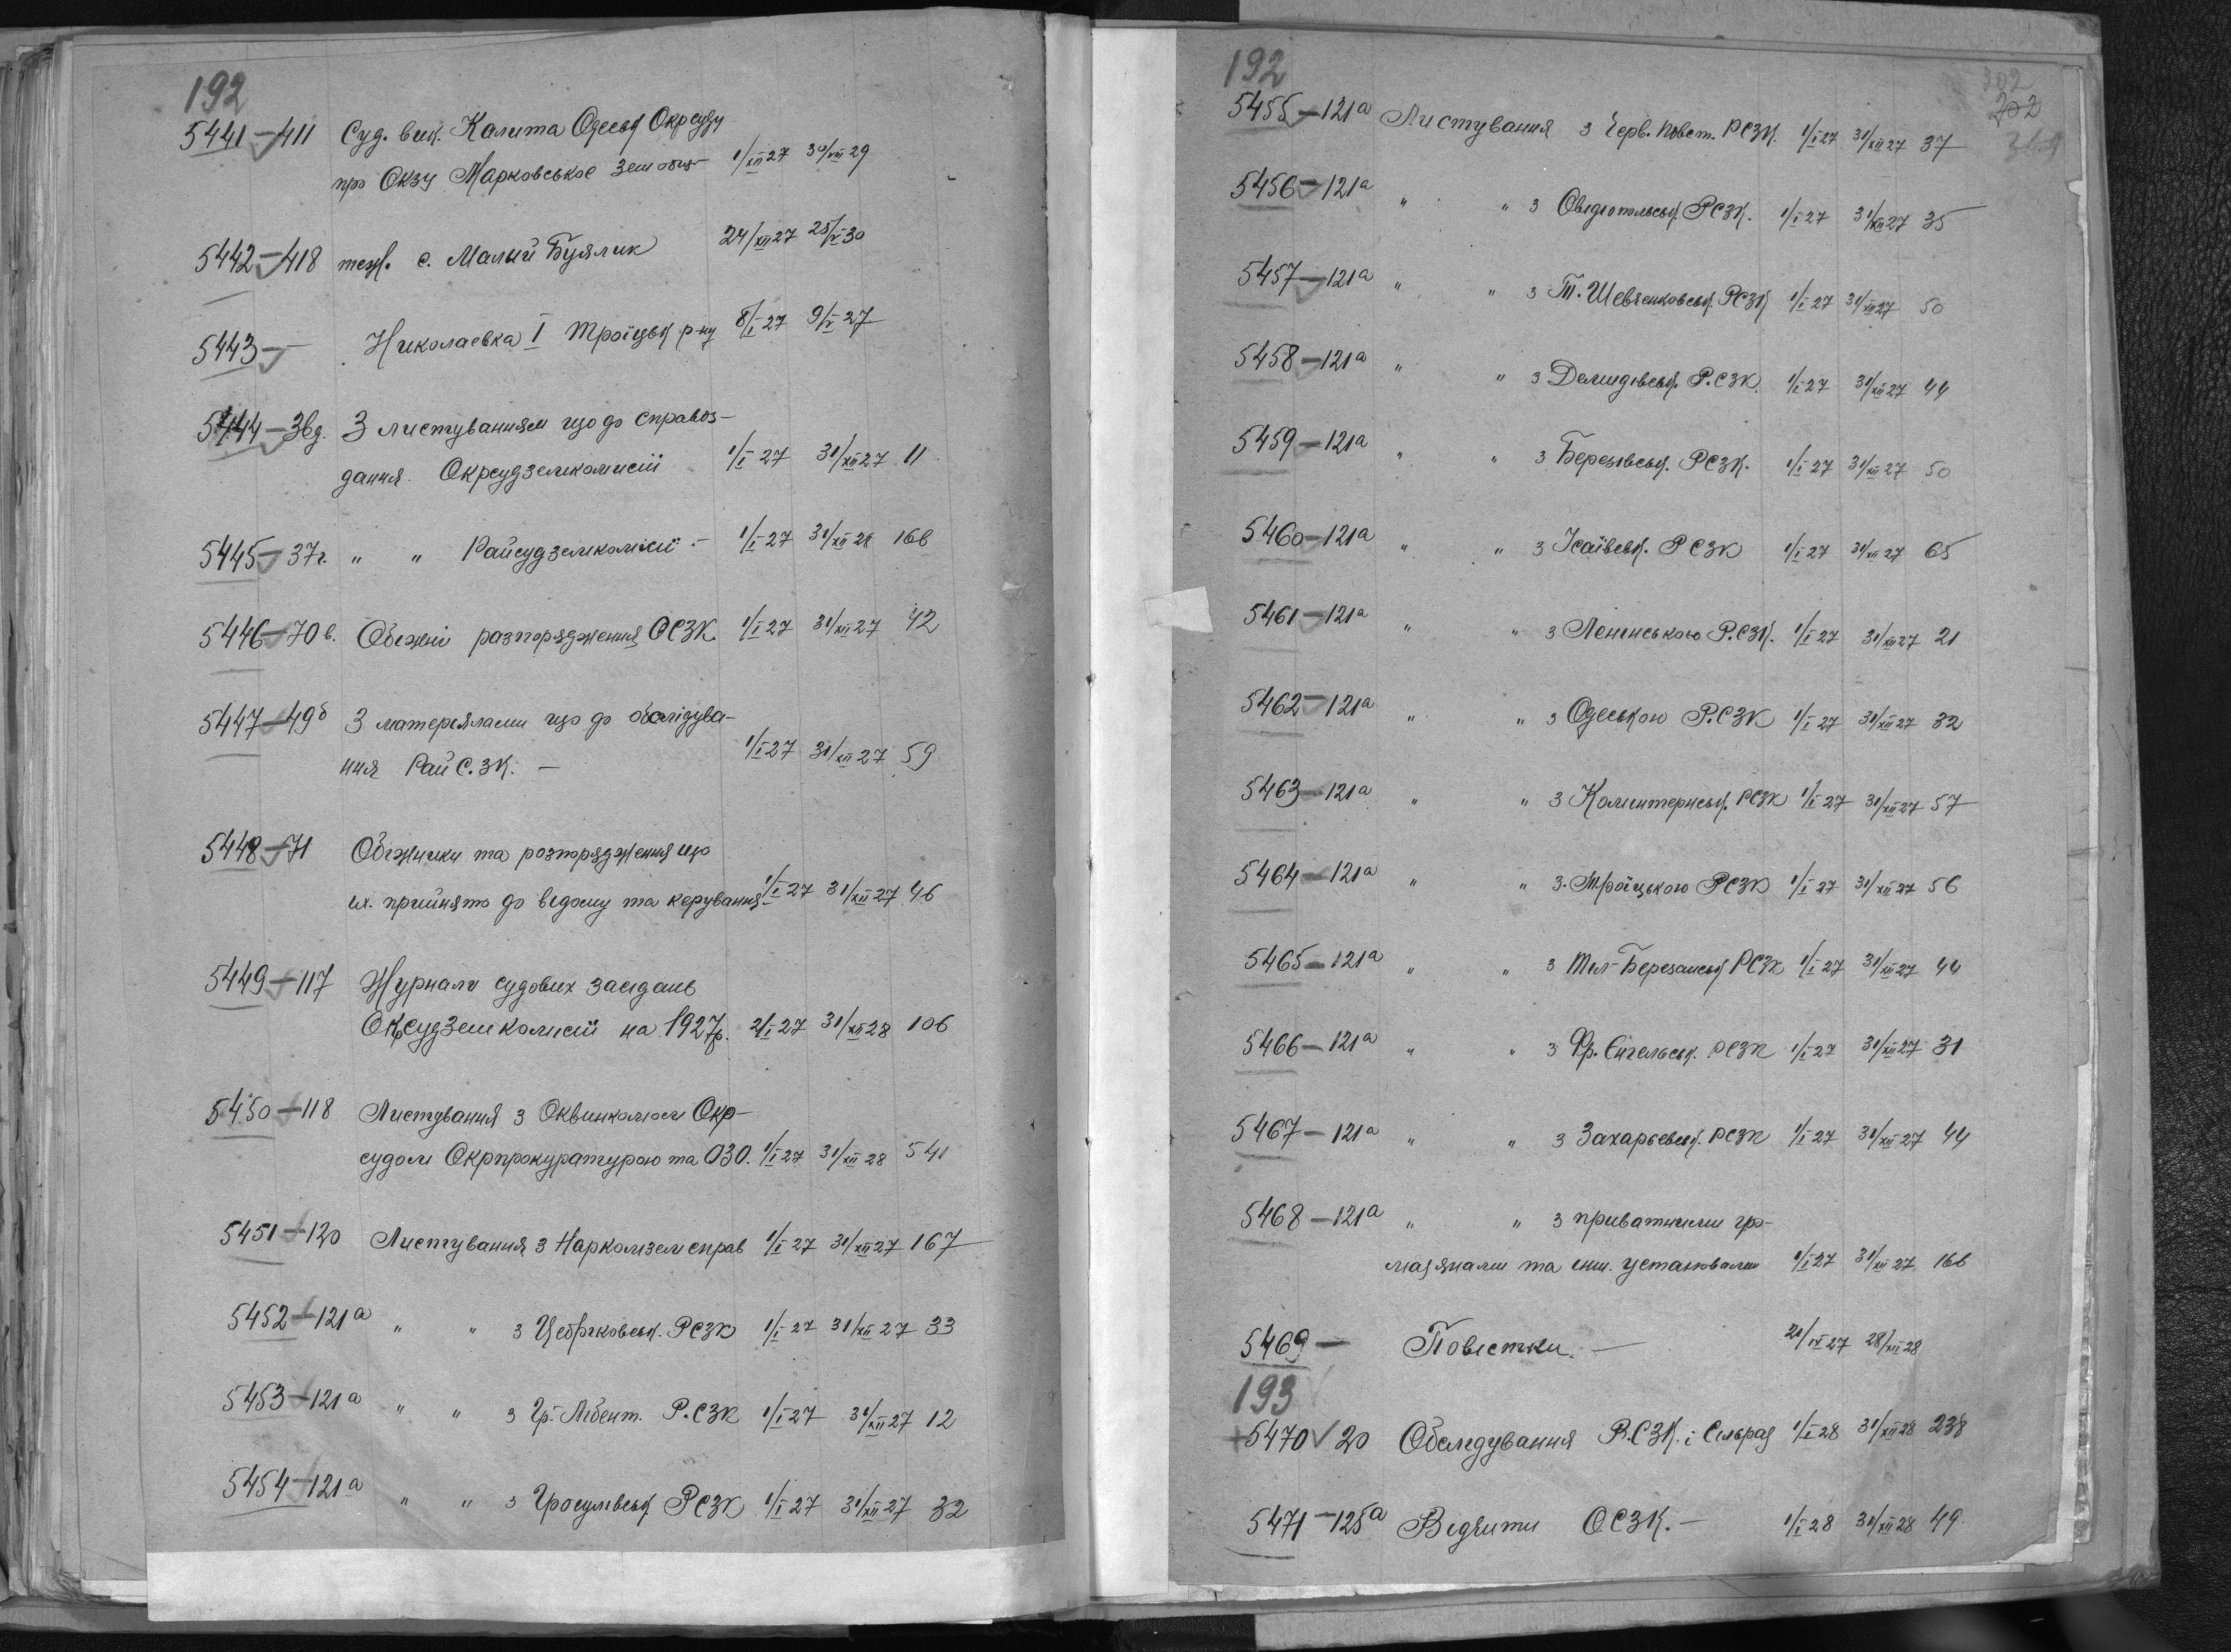 192
5441 – 411 Суд. вик. Калита Одеськ Окрсуду
про Окзу Марковськое Земобщ – 1/XII 27 30/VIII 29
5442 – 418 теж. с. Малий Буялик 24/XII 27 25/V 30
5443 – Николаевка I Троїцьк р-ну 8/I 27 9/V 27
5444 – 36д. З листуванням що до справоз-
дання Окрсудземкомисії 1/I 27 31/XII 27 11
5445 – 37г. " " Райсудземкомісії – 1/I 27 31/XII 28 166
5446 – 70в. Обіжні разпорядження ОСЗК. 1/I 27 31/XII 27 42
5447 – 49б З матеріялами що до обслідува-
ння Рай С.ЗК. – 1/I 27 31/XII 27 59
5448 – 71 Обіжники та розпорядження що
їх прийнято до відому та керування 1/I 27 31/XII 27 46
5449 – 117 Журнали судових засідань
Окрсудземкомисії на 1927 р. 2/I 27 31/XII 28 106
5450 – 118 Листування з Оквинкомом Окр-
судом Окрпрокуратурою та ОЗО. 1/I 27 31/XII 28 541
5451 – 120 Листування з Наркомземсправ 1/I 27 31/XII 27 167
5452 – 121а " " з Цебріковськ. РСЗК 1/I 27 31/XII 27 33
5453 – 121а " " з Гр.-Лібент. Р.СЗК 1/I 27 31/XII 27 12
5454 – 121а " " з Гросулівськ РСЗК 1/I 27 31/XII 27 32
192
202
5455 – 121а Листування з Черв. Повст. РСЗК. 1/I 27 31/XII 27 37
5456 – 121а " " з Овідіопольськ РСЗК. 1/I 27 31/XII 27 35
5457 – 121а " " з Т. Шевченковськ. РСЗК 1/I 27 31/XII 27 50
5458 – 121а " " з Демидівськ. Р.СЗК. 1/I 27 31/XII 27 44
5459 – 121а " " з Березівськ. РСЗК. 1/I 27 31/XII 27 50
5460 – 121а " " з Ісаївськ. РСЗК 1/I 27 31/XII 27 65
5461 – 121а " " з Ленінською Р.СЗК. 1/I 27 31/XII 27 21
5462 – 121а " " з Одеською Р.СЗК 1/I 27 31/XII 27 32
5463 – 121а " " з Комінтернськ. РСЗК 1/I 27 31/XII 27 57
5464 – 121а " " з. Троїцькою РСЗК 1/I 27 31/XII 27 56
5465 – 121а " " з Тил-Березанськ РСЗК 1/I 27 31/XII 27 44
5466 – 121а " " з Фр. Енгельськ. РСЗК 1/I 27 31/XII 27 31
5467 – 121а " " з Захарьевськ. РСЗК 1/I 27 31/XII 27 44
5468 – 121а " " з приватними гро-
мадянами та инш. установами 1/I 27 31/XII 27 166
5469 – Повістки. – 21/IX 27 28/XII 28
193
5470 20 Обслідування Р.СЗК. і Сільрад 1/I 28 31/XII 28 238
5471 – 125а Відчити ОСЗК. – 1/I 28 31/XII 28 49